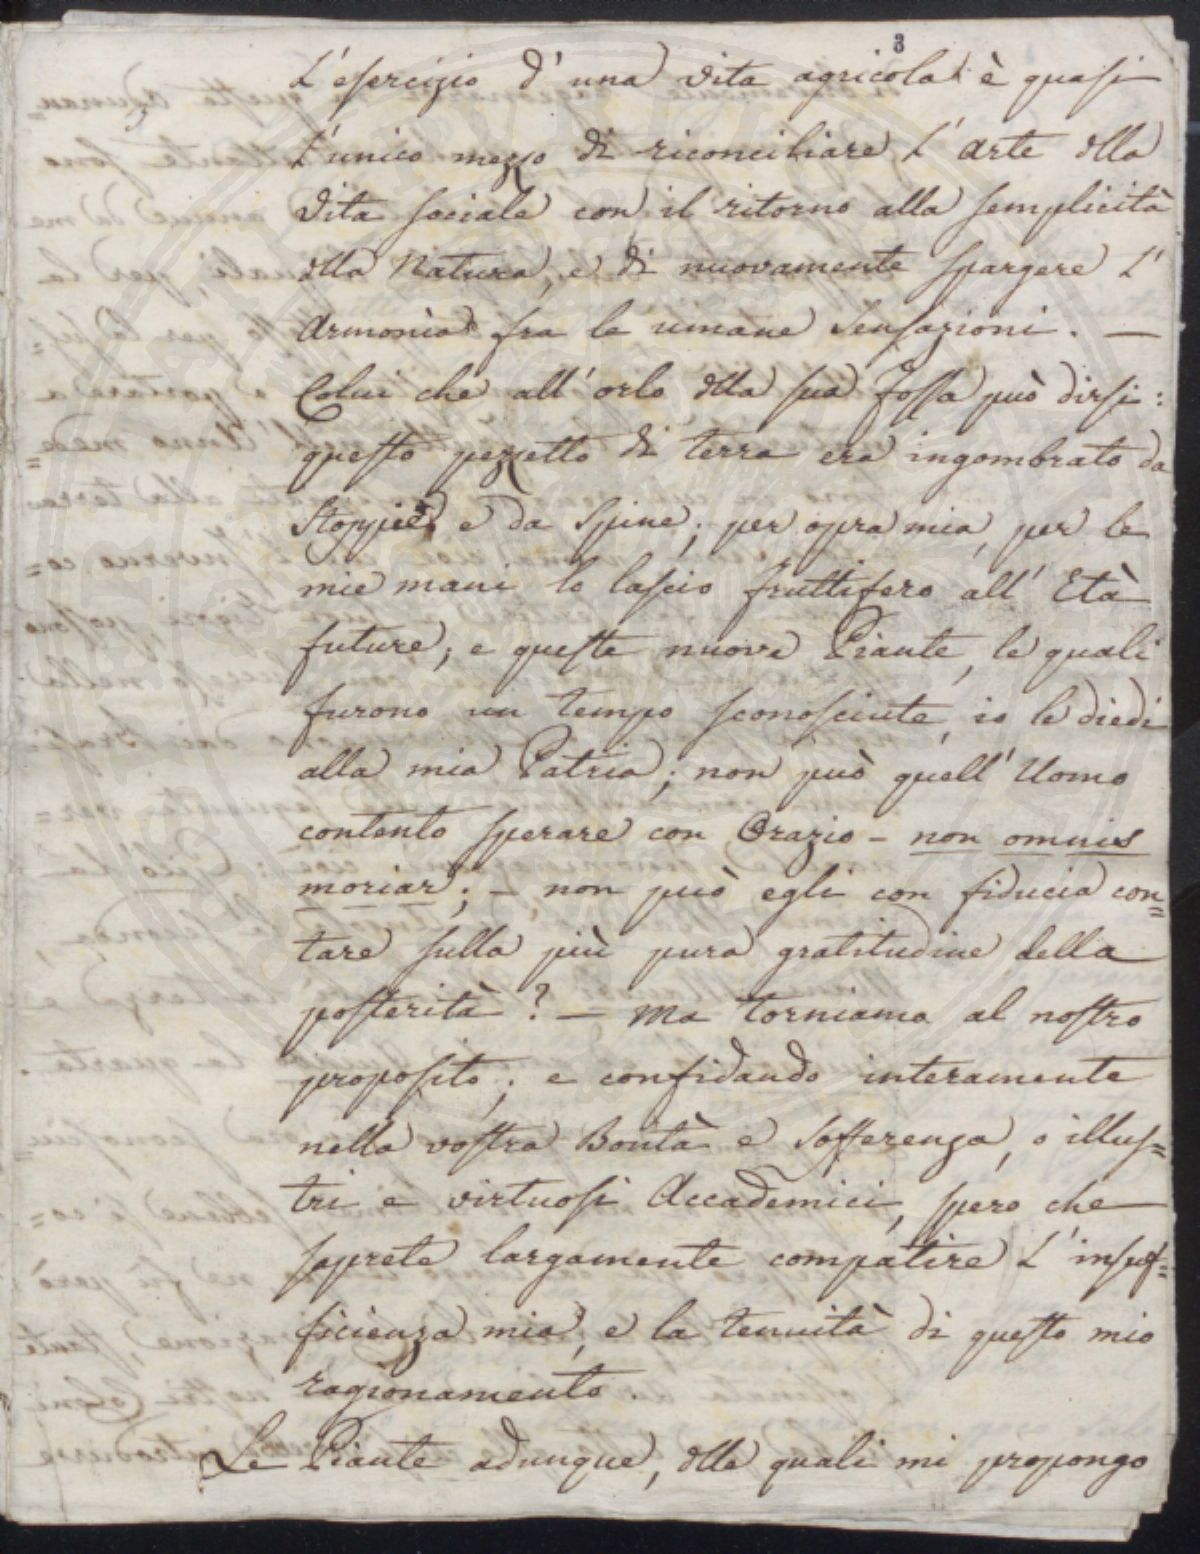 3
L'esercizio d'una vita agricola è quasi
l'unico mezzo di riconciliare l'arte dlla
vita sociale con il ritorno alla semplicità
dlla Natura, e di nuovamente spargere l'
Armonia fra le umane Sensazioni. —
Colui che all'orlo dlla sua fossa può dirsi:
questo pezzetto di terra era ingombrato da
Stoppie e da Spine; per opra mia, per le
mie mani lo lascio fruttifero all'Età
future; e queste nuove Piante, le quali
furono un tempo sconosciute, io le diedi
alla mia Patria; non può quell'Uomo
contento sperare con Orazio - non omnis
moriar; - non può egli con fiducia con=
tare sulla più pura gratitudine della
posterità? — Ma torniamo al nostro
proposito; e confidando interamente
nella vostra Bontà e Sofferenza, o illus=
tri e virtuosi Accademici, spero che
saprete largamente compatire l'insuf=
ficienza mia, e la tenuità di questo mio
ragionamento.
Le Piante adunque, dlle quali mi propongo